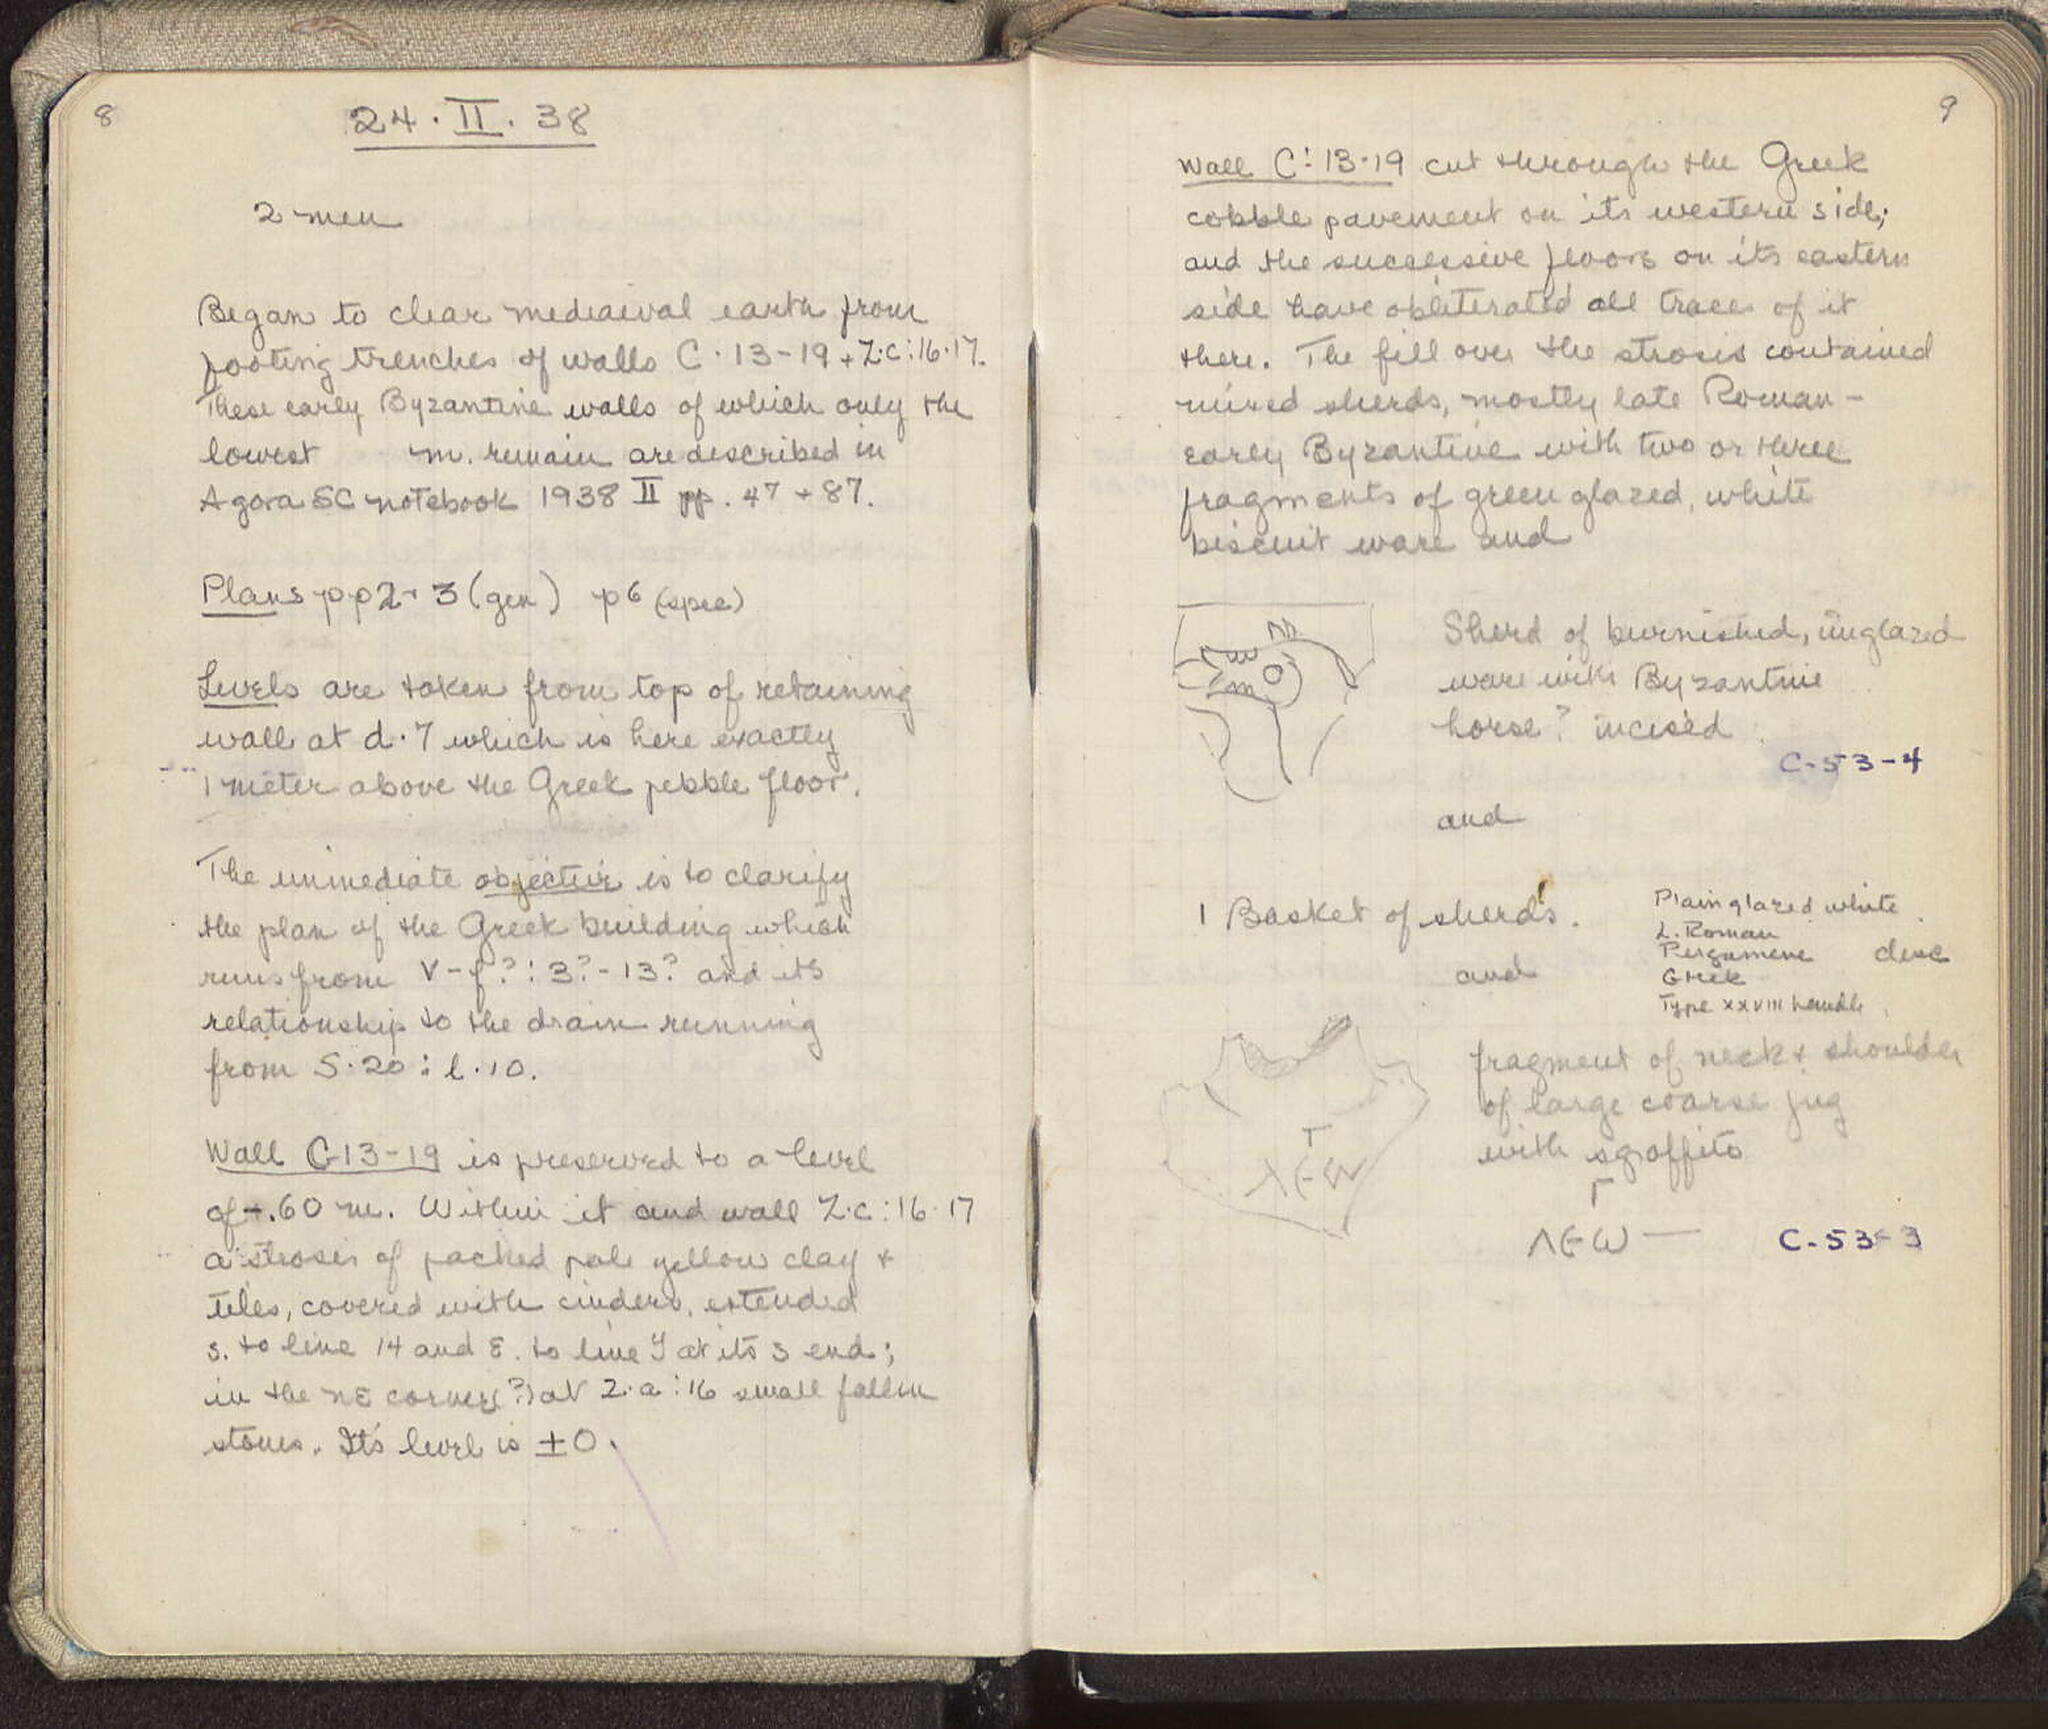 8
24 · II · 38
2 men
Began to clear mediaeval earth from
footing trenches of walls C · 13-19 + Z·C:16·17.
These early Byzantine walls of which only the
lowest m. remain are described in
Agora SC notebook 1938 II pp. 47 + 87.
Plans pp 2 + 3 (gen) p 6 (spec)
Levels are taken from top of retaining
wall at d·7 which is here exactly
1 meter above the Greek pebble floor.
The immediate objective is to clarify
the plan of the Greek building which
runs from V-f?:3?-13? and its
relationship to the drain running
from S·20 : l·10.
Wall C-13-19 is preserved to a level
of +.60 m. Within it and wall Z·c:16·17
a strosis of packed pale yellow clay +
tiles, covered with cinders, extended
S. to line 14 and E. to line Y at its S end;
in the NE corner (?) at Z·a:16 small fallen
stones. Its level is ±0.
9
Wall C:13-19 cut through the Greek
cobble pavement on its western side;
and the successive floors on its eastern
side have obliterated all traces of it
there. The fill over the strosis contained
mixed sherds, mostly late Roman-
early Byzantine with two or three
fragments of green glazed, white
biscuit ware and
Sherd of burnished, unglazed
ware with Byzantine
horse? incised
C-53-4
and
1 Basket of sherds.
Plain glazed white
L. Roman
Pergamene
Greek
Type XXVIII handle
and
fragment of neck + shoulder
of large coarse jug
with sgraffito
Γ
ΛΕω
Γ
ΛΕω —
C-53-3